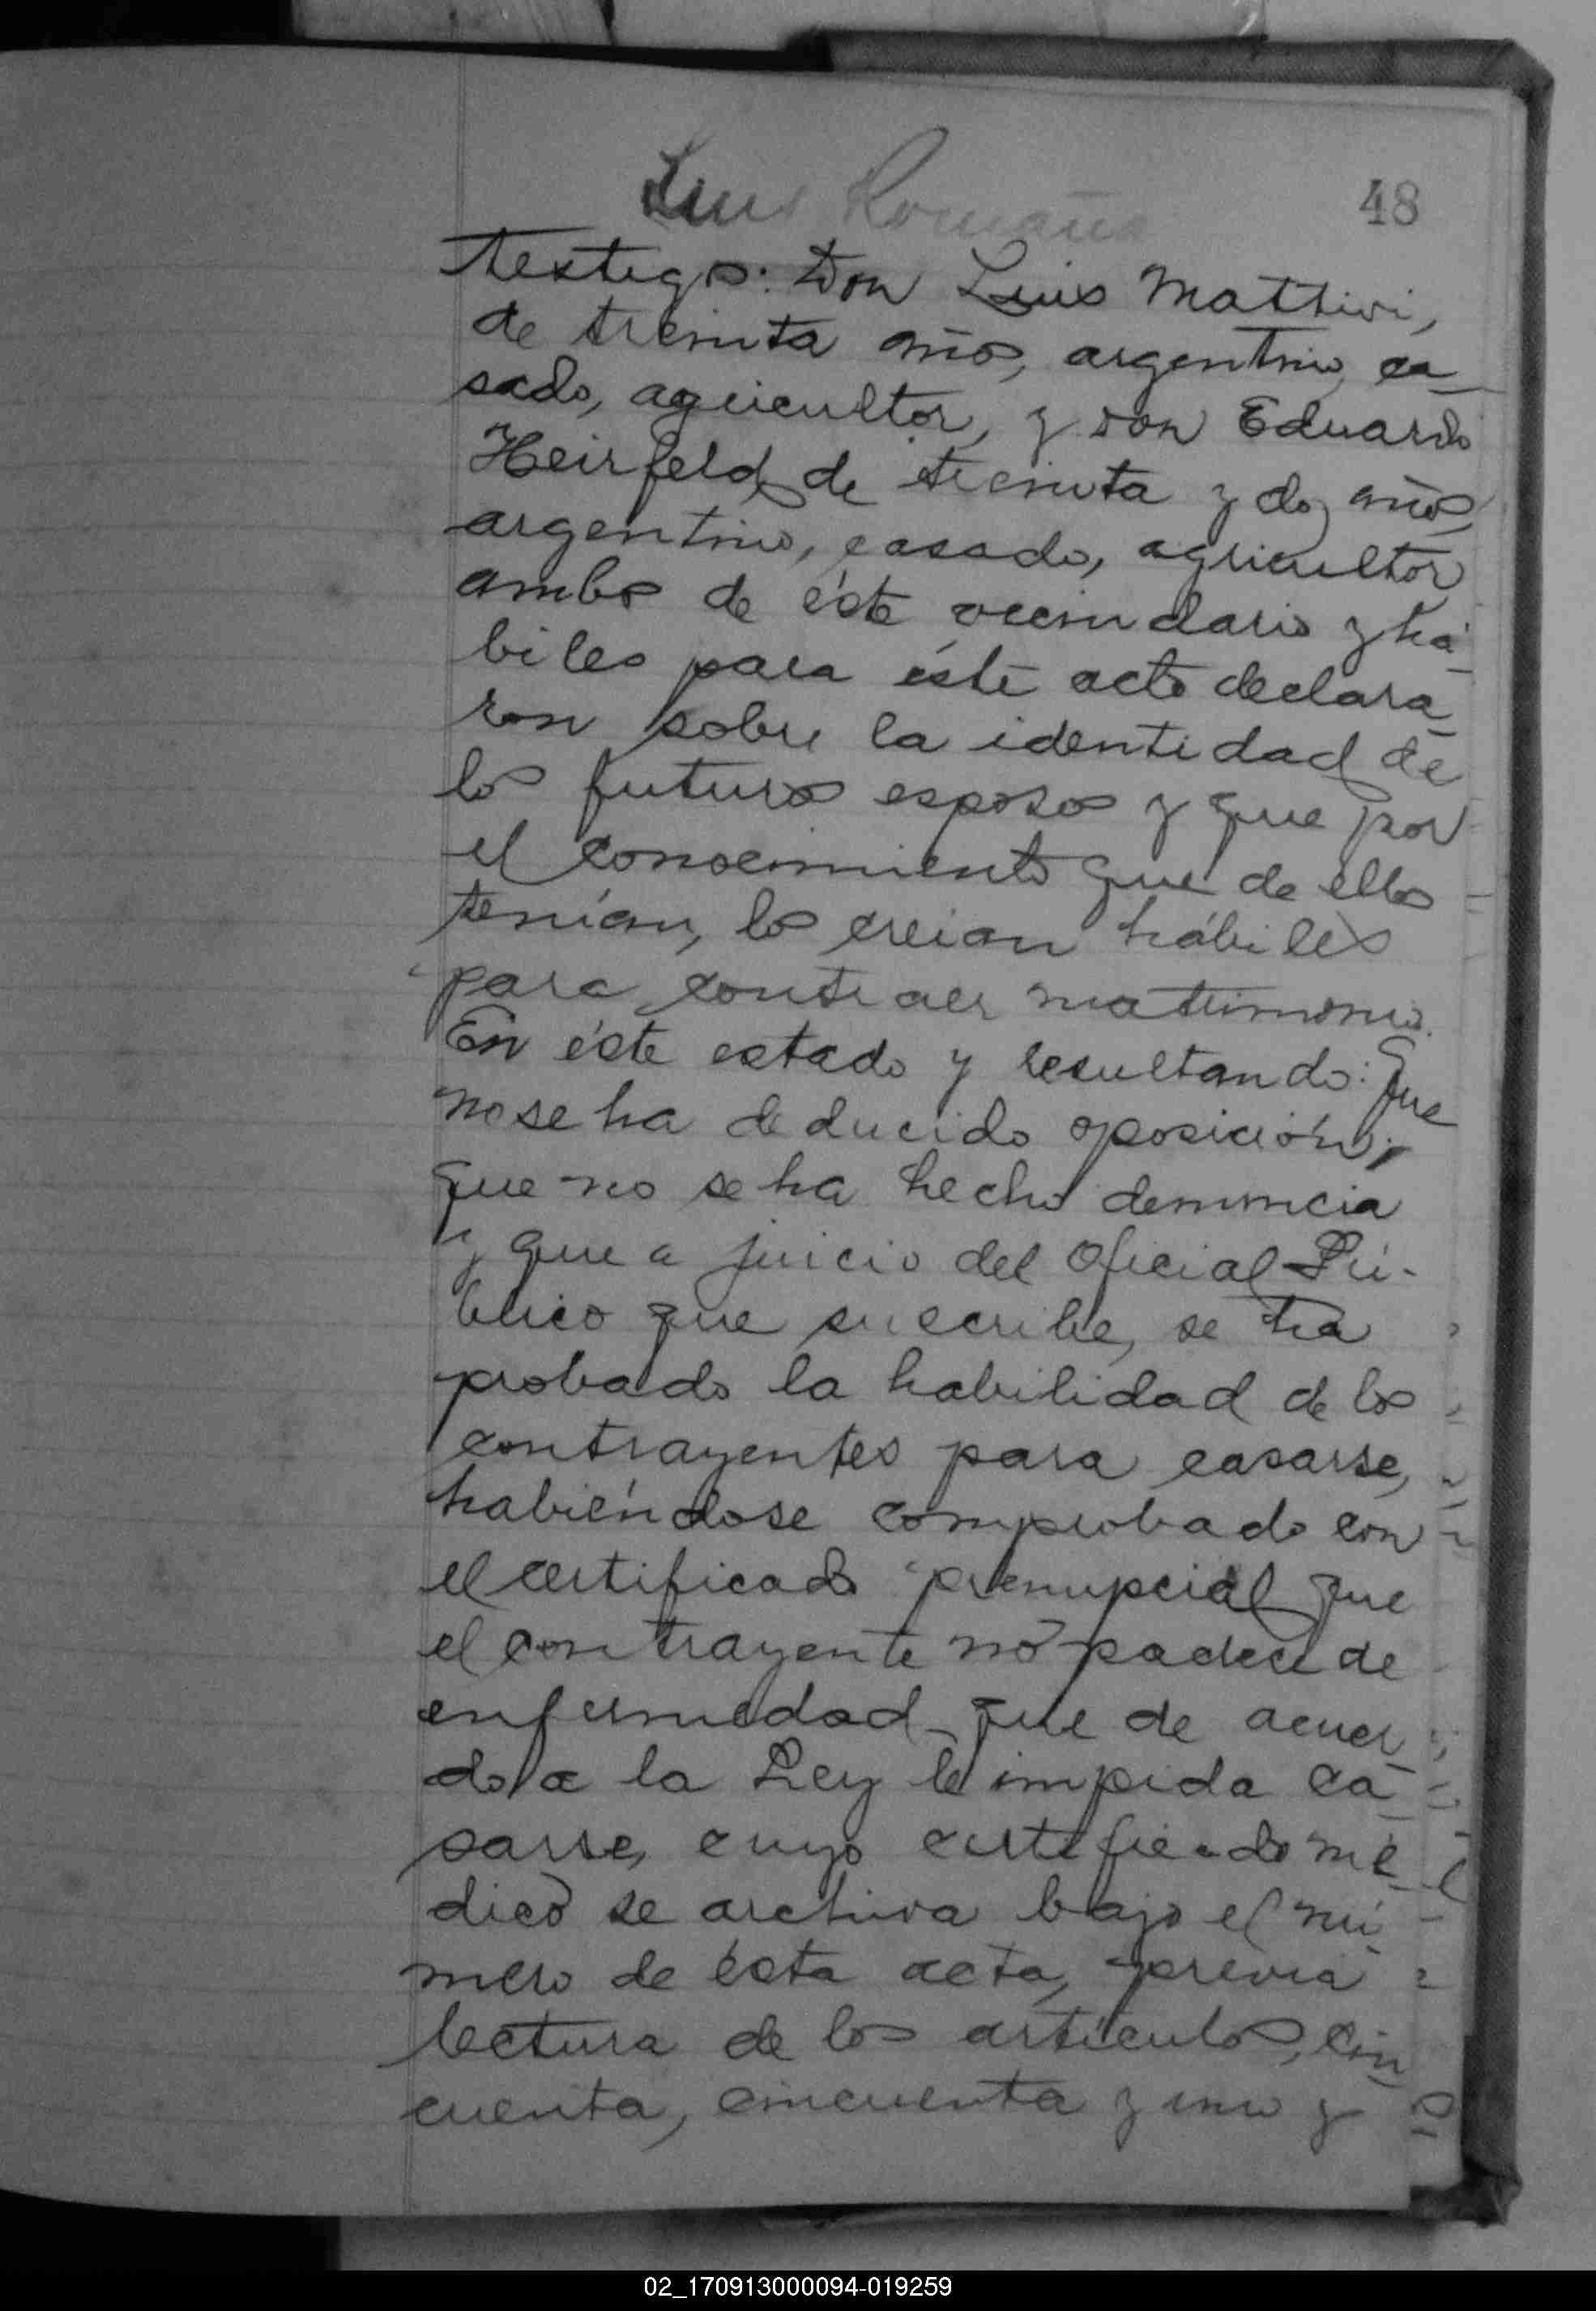 Luis Romaña
48
testigos: Don Luis Mattivi,
de treinta años, argentino, ca_
sado, agricultor, y don Eduardo
Heirfeld, de treinta y dos años,
argentino, casado, agricultor
ambos de éste vecindario y há_
biles para éste acto declara_
ron sobre la identidad de
los futuros esposos y que por
el conocimiento que de ellos
tenían, los creian hábiles
para contraer matrimonio.
En éste estado y resultando: Que
no se ha deducido oposición,
que no se ha hecho denuncia
y que a juicio del Oficial Pú-
blico que suscribe, se ha
probado la habilidad de los
contrayentes para casarse,
habiéndose comprobado con
el certificado prenupcial que
el contrayente no padece de
enfermedad que de acuer_
do a la Ley le impida ca_
sarse, cuyo certificado mé_
dico se archiva bajo el nú_
mero de ésta acta, previa
lectura de los artículos, cin_
cuenta, cincuenta y uno y
02_170913000094-019259